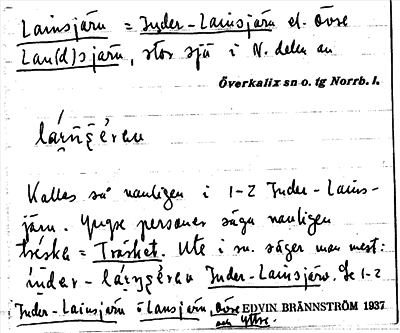 Lainsjärv = Inder-Lainsjärv el. övre
Lan(d)sjärv, stor sjö i N. delen av
Överkalix sn o. tg Norrb. l.
Kallas så vanligen i 1-2 Inder-Lains-
järv. Yngre personer säga vanligen
= Träsket. Ute i sn. säger man mest:
Inder-Lainsjärv. Se 1-2
Inder-Lainsjärv o Lansjärv, övre EDVIN BRÄNNSTRÖM 1937
och yttre.